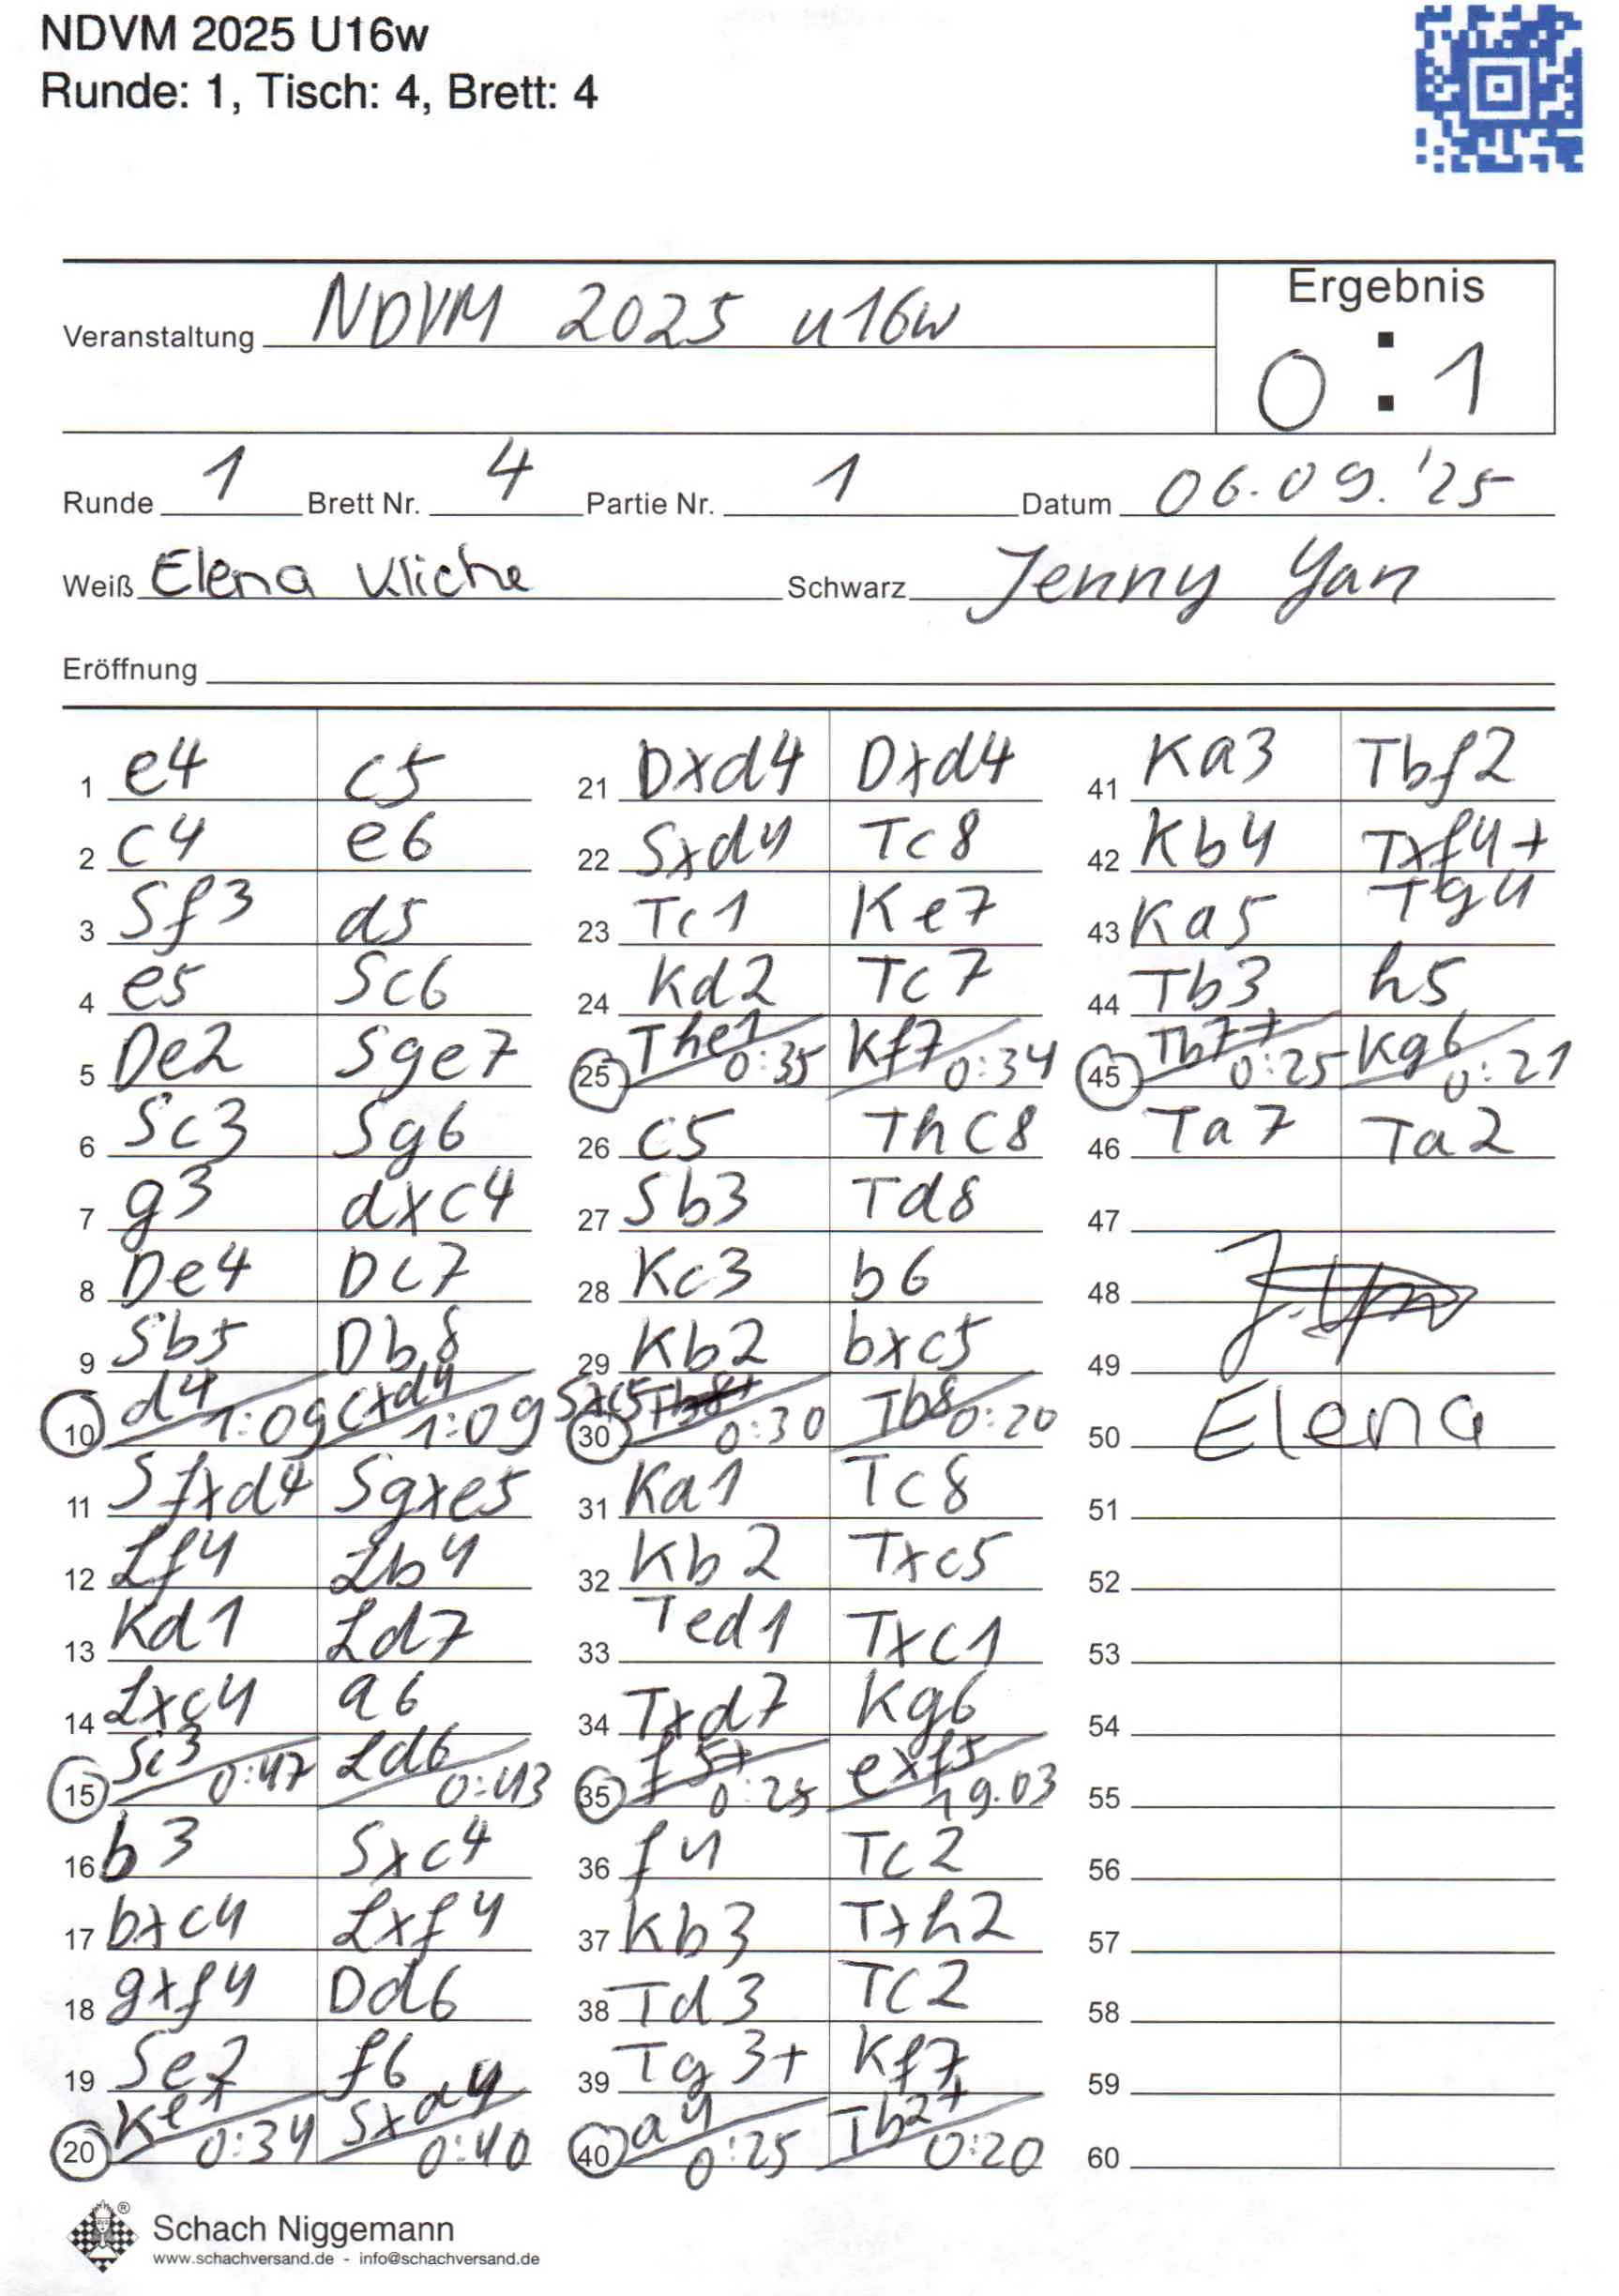 NDVM 2025 U16w
Runde: 1, Tisch: 4, Brett: 4
Ergebnis
Veranstaltung NDVM 2025 u16w
0 : 1
Runde 1 Brett Nr. 4 Partie Nr. 1 Datum 06.09.'25
Weiß Elena Kliche Schwarz Jenny Yan
Eröffnung
1 e4 c5
2 c4 e6
3 Sf3 d5
4 e5 Sc6
5 De2 Sge7
6 Sc3 Sg6
7 g3 dxc4
8 De4 Dc7
9 Sb5 Db8
10 d4 1:09 cxd4 1:09
11 Sfxd4 Sgxe5
12 Lf4 Lb4
13 Kd1 Ld7
14 Lxc4 a6
15 Sc3 0:47 Ld6 0:43
16 b3 Sxc4
17 bxc4 Lxf4
18 gxf4 Dd6
19 Se2 f6
20 Ke1 0:34 Sxd4 0:40
21 Dxd4 Dxd4
22 Sxd4 Tc8
23 Tc1 Ke7
24 Kd2 Tc7
25 The1 0:35 Kf7 0:34
26 c5 Thc8
27 Sb3 Td8
28 Kc3 b6
29 Kb2 bxc5
30 Sxc5 0:30 Tb8 0:20
31 Ka1 Tc8
32 Kb2 Txc5
33 Ted1 Txc1
34 Txd7 Kg6
35 f5+ 0:25 exf5 19.03
36 f4 Tc2
37 Kb3 Txh2
38 Td3 Tc2
39 Tg3+ Kf7
40 a4 0:25 Tb2+ 0:20
41 Ka3 Tbf2
42 Kb4 Txf4+
43 Ka5 Tg4
44 Tb3 h5
45 Tb7+ 0:25 Kg6 0:21
46 Ta7 Ta2
47
48
49
50 Elena
51
52
53
54
55
56
57
58
59
60
Schach Niggemann
www.schachversand.de - info@schachversand.de